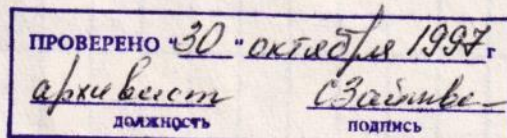 ПРОВЕРЕНО "30" октября 1997 г
архивист
ДОЛЖНОСТЬ ПОДПИСЬ